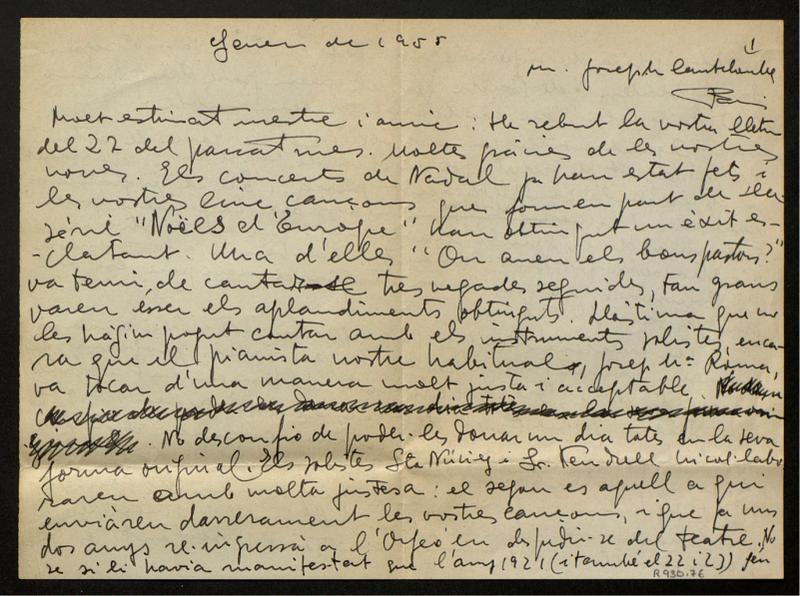 Gener de 1955
1
M. Joseph Canteloube
Paris
Molt estimat mestre i amic: He rebut la vostra lletra
del 27 del passat mes. Moltes gràcies de les vostres
noves. Els concerts de Nadal ja han estat fets i
les vostres cinc cançons que formen part de
sèrie "Noëls d'Europe" han obtingut un èxit es-
-clatant. Una d'elles "On aneu els bons pastors?"
va tenir de cantar-se tres vegades seguides, tan grans
varen esser els aplaudiments obtinguts. Llàstima que no
les hàgim pogut cantar amb els instruments solistes, enca-
ra que el pianista nostre habitual, Josep Mª Roma,
va tocar d'una manera molt justa i acceptable.
No desconfio de poder-les donar un dia totes en la seva
forma original. Els solistes Sta Núñez i Sr. Vendrell hi col·labo
raren amb molta justesa: el segon es aquell a qui
enviàren darrerament les vostres cançons, i que fa uns
dos anys re-ingressà a l'Orfeó en despedir-se del teatre. No
se si li havia manifestat que l'any 1921 (i també el 22 i 23) feu
R 930.76